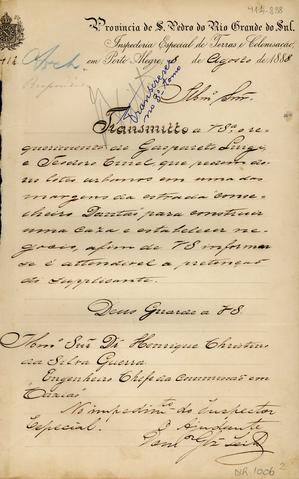 414-838
Provincia de S. Pedro do Rio Grande do Sul.
Inspectoria Especial de Terras e Colonisação,
em Porto Alegre, de Agosto de 1888
Arch
Transcreveu
no 2º tomo
Illmo Snr.
Transmitto a VSa o re
querimento de Gasparete Luigi
e Isidoro que pedem do
us lotes urbanos em uma das
margens da estrada conse
lheiro Dantas para construir
uma caza e estabelecer ne
gocio, afim de VS informar
se é attendivel a pretenção
do supplicante.
Deus Guarde a VS.
Illmo Snr Dr Henrique Christino
da Silva Guerra
Engenheiro Chefe da Commissão em
Caxias
No impedimto do Inspector
Especial.
O Ajudante
DIR 1006 2